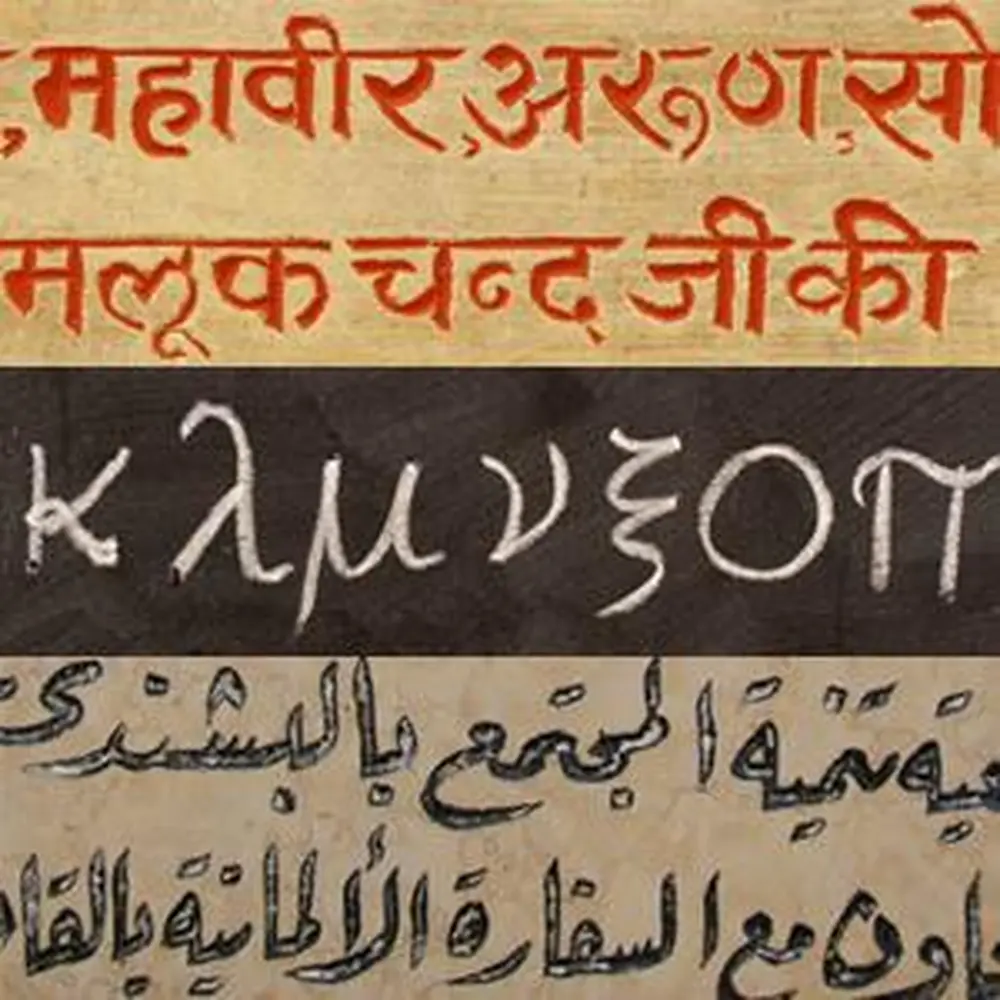 ,महावीर,अरुण,सो
मलूक चन्द जी की
κ λ μ ν ξ ο π
تنمية المجتمع بالبشندى
مع السفارة الألمانية